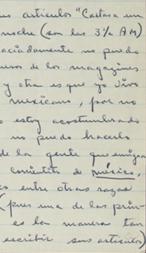 us artículos "Cartas a un
noche (son las 3½ AM)
aciadamente no puedo
uros de los magazines
y otra es que yo vivo
mexicano, por no
estoy acostumbrado
no puedo hacerlo
de la gente que
de México,
es entre otras cosas
(pues una de las prin-
es la manera tan
escribir sus artículos)